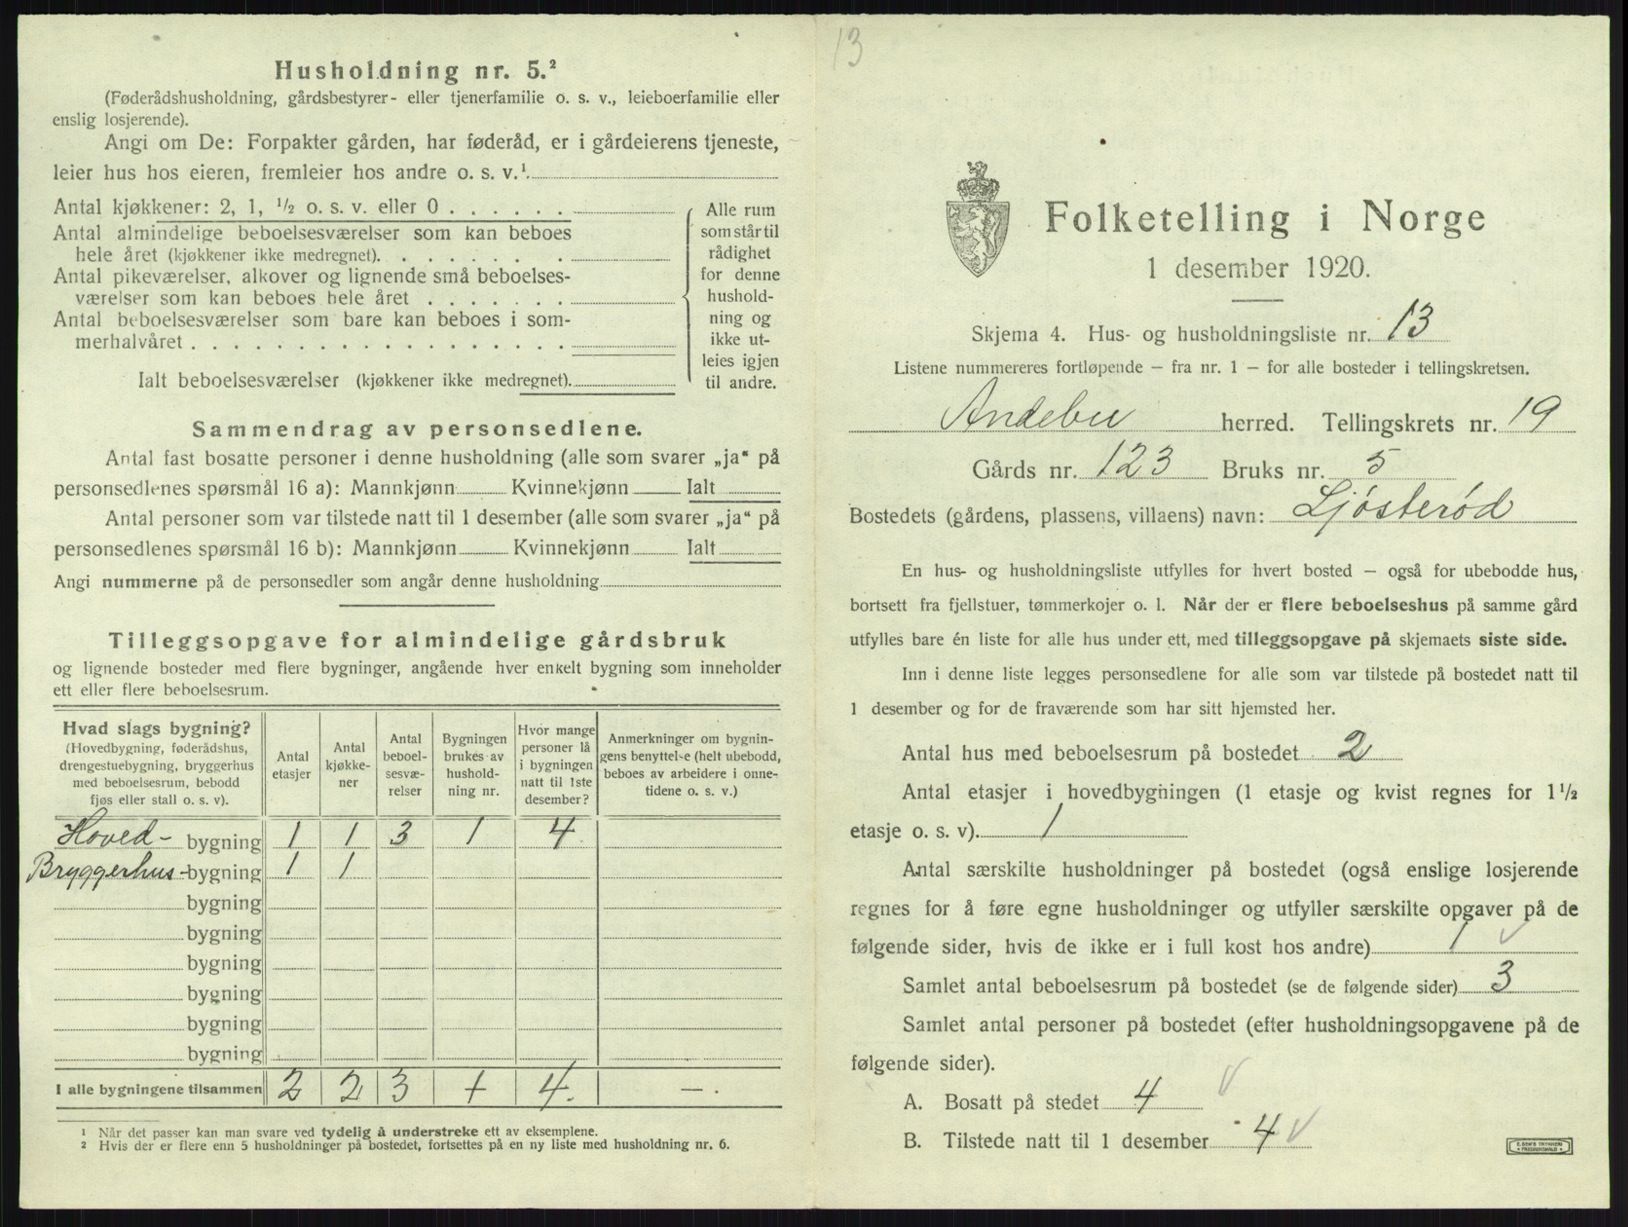 Husholdning nr. 5.²
(Føderådshusholdning, gårdsbestyrer- eller tjenerfamilie o. s. v., leieboerfamilie eller
enslig losjerende).
Angi om De: Forpakter gården, har føderåd, er i gårdeierens tjeneste,
leier hus hos eieren, fremleier hos andre o. s. v.¹
Antal kjøkkener: 2, 1, ½ o. s. v. eller 0
Antal almindelige beboelsesværelser som kan beboes
hele året (kjøkkener ikke medregnet).
Antal pikeværelser, alkover og lignende små beboelses-
værelser som kan beboes hele året
Antal beboelsesværelser som bare kan beboes i som-
merhalvåret
Ialt beboelsesværelser (kjøkkener ikke medregnet).
Alle rum
som står til
rådighet
for denne
hushold-
ning og
ikke ut-
leies igjen
til andre.
Sammendrag av personsedlene.
Antal fast bosatte personer i denne husholdning (alle som svarer „ja“ på
personsedlenes spørsmål 16 a): Mannkjønn Kvinnekjønn Ialt
Antal personer som var tilstede natt til 1 desember (alle som svarer „ja“ på
personsedlenes spørsmål 16 b): Mannkjønn Kvinnekjønn Ialt
Angi nummerne på de personsedler som angår denne husholdning
Tilleggsopgave for almindelige gårdsbruk
og lignende bosteder med flere bygninger, angående hver enkelt bygning som inneholder
ett eller flere beboelsesrum.
Hvad slags bygning?
(Hovedbygning, føderådshus,
drengestuebygning, bryggerhus
med beboelsesrum, bebodd
fjøs eller stall o. s. v).
Antal
etasjer
Antal
kjøkke-
ner
Antal
beboel-
sesvæ-
relser
Bygningen
brukes av
hushold-
ning nr.
Hvor mange
personer lå
i bygningen
natt til 1ste
desember?
Anmerkninger om bygnin-
gens benyttelse (helt ubebodd,
beboes av arbeidere i onne-
tidene o. s. v.)
Hoved- bygning 1 1 3 1 4
Bryggerhus -bygning 1 1
bygning
bygning
bygning
bygning
bygning
bygning
I alle bygningene tilsammen 2 2 3 + 4. -.
¹ Når det passer kan man svare ved tydelig å understreke ett av eksemplene.
² Hvis der er flere enn 5 husholdninger på bostedet, fortsettes på en ny liste med husholdning nr. 6.
13
Folketelling i Norge
1 desember 1920.
Skjema 4. Hus- og husholdningsliste nr. 13
Listene nummereres fortløpende – fra nr. 1 – for alle bosteder i tellingskretsen.
Andebu herred. Tellingskrets nr. 19
Gårds nr. 123 Bruks nr. 5
Bostedets (gårdens, plassens, villaens) navn: Ljøsterød
En hus- og husholdningsliste utfylles for hvert bosted – også for ubebodde hus,
bortsett fra fjellstuer, tømmerkojer o. l. Når der er flere beboelseshus på samme gård
utfylles bare én liste for alle hus under ett, med tilleggsopgave på skjemaets siste side.
Inn i denne liste legges personsedlene for alle som var tilstede på bostedet natt til
1 desember og for de fraværende som har sitt hjemsted her.
Antal hus med beboelsesrum på bostedet 2
Antal etasjer i hovedbygningen (1 etasje og kvist regnes for 1½
etasje o. s. v). 1
Antal særskilte husholdninger på bostedet (også enslige losjerende
regnes for å føre egne husholdninger og utfyller særskilte opgaver på de
følgende sider, hvis de ikke er i full kost hos andre) 1
Samlet antal beboelsesrum på bostedet (se de følgende sider) 3
Samlet antal personer på bostedet (efter husholdningsopgavene på de
følgende sider).
A. Bosatt på stedet 4
B. Tilstede natt til 1 desember 4